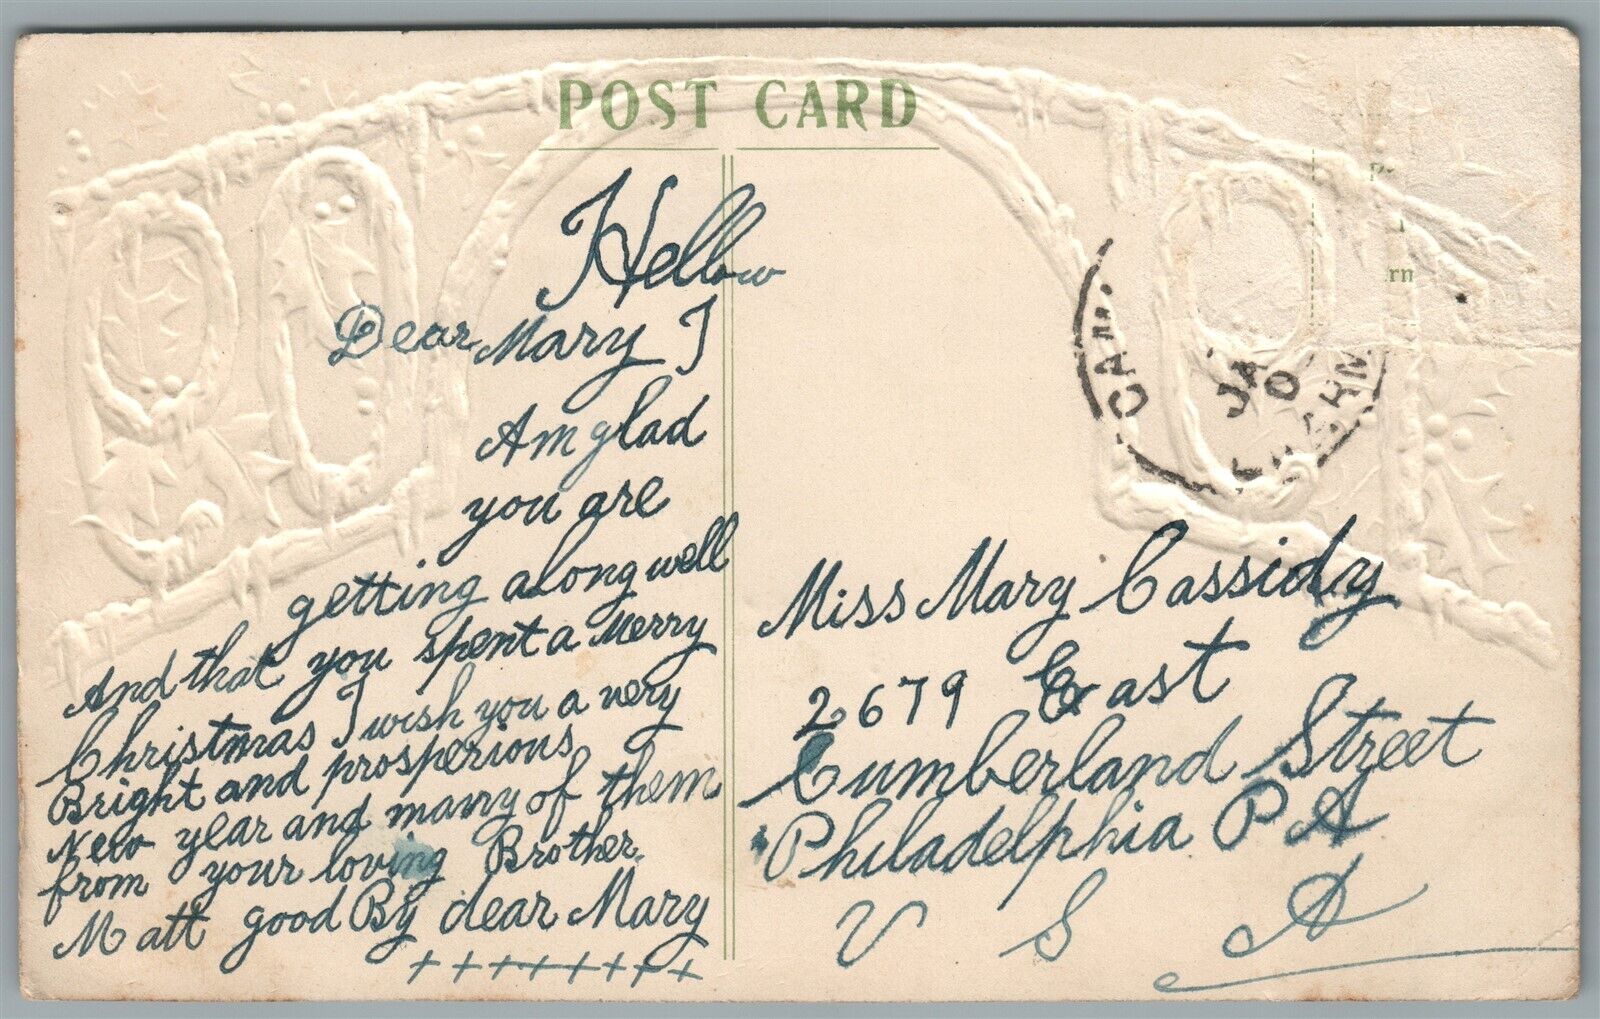 POST CARD
Hellow
Dear Mary I
Am glad
you are
getting along well
And that you spent a Merry
Christmas I wish you a very
Bright and prosperious
New year and many of them
from your loving Brother
Matt good By dear Mary
+ + + + + + + +
Miss Mary Cassidy
2679 East
Cumberland Street
Philadelphia PA
U S A